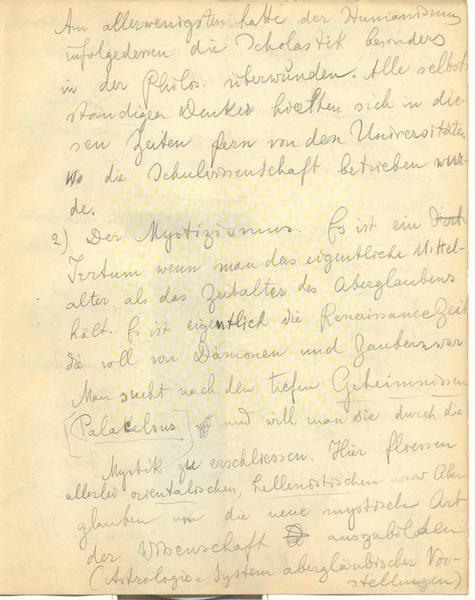 Am allerwenigsten hatte der Humanismus
infolgedessen die Scholastik besonders
in der Philos. überwunden. Alle selbst
ständigen Denker hielten sich in die-
sen Zeiten fern von den Universitäten
wo die Schulwissenschaft betrieben wur-
de.
2) Der Mystizismus. Es ist ein
Irrtum wenn man das eigentliche Mittel-
alter als das Zeitalter des Aberglaubens
hält. Es ist eigentlich die Renaissance Zeit
die voll von Dämonen und Zaubern war
Man sucht nach den tiefen Geheimnissen
(Palacelsus) und will man sie durch die
Mystik zu erschliessen. Hier fliessen
allerlei orientalischen, hellenistischen Aber
glauben um die neue mystische Art
der Wissenschaft auszubilden
(Astrologie = System abergläubischer Vor-
stellungen)